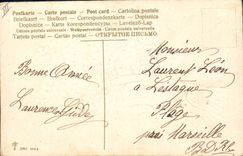 Postkarte — Carte postale — Post card — Cartolina postale
Briefkaart — Brefkort — Correspondenzkarte — Dopisnica
Dopisnice — Karta korespondencyjna — Levelező-Lap
Tarjeta postal — Cartão postal — ОТКРЫТОЕ ПИСЬМО.
Monsieur
Bonne Année
Laurent Léon
à Lestaque
Laurence
Plage
près Marseille
B.D.Rh.